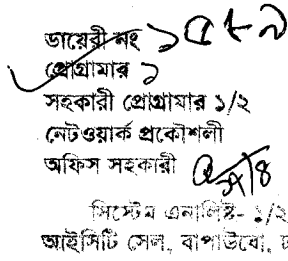 ডায়েরী নং ১৫৮৯
প্রোগ্রামার ১
সহকারী প্রোগ্রামার ১/২
নেটওয়ার্ক প্রকৌশলী
অফিস সহকারী
সিস্টেম এনালিষ্ট- ১/২
আইসিটি সেল, বাপাউবো,